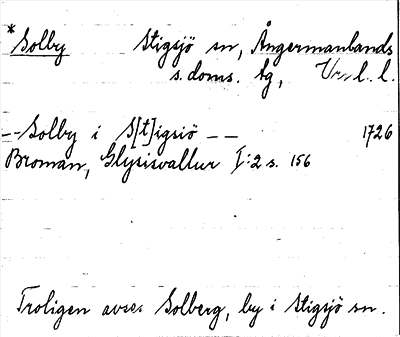 *Solby Stigsjö sn, Ångermanlands
s. doms. tg, Vnl. l.
-- Solby i S[t]igsiö -- 1726
Broman, Glysisvallur I:2 s. 156
Troligen avses Solberg, by i Stigsjö sn.